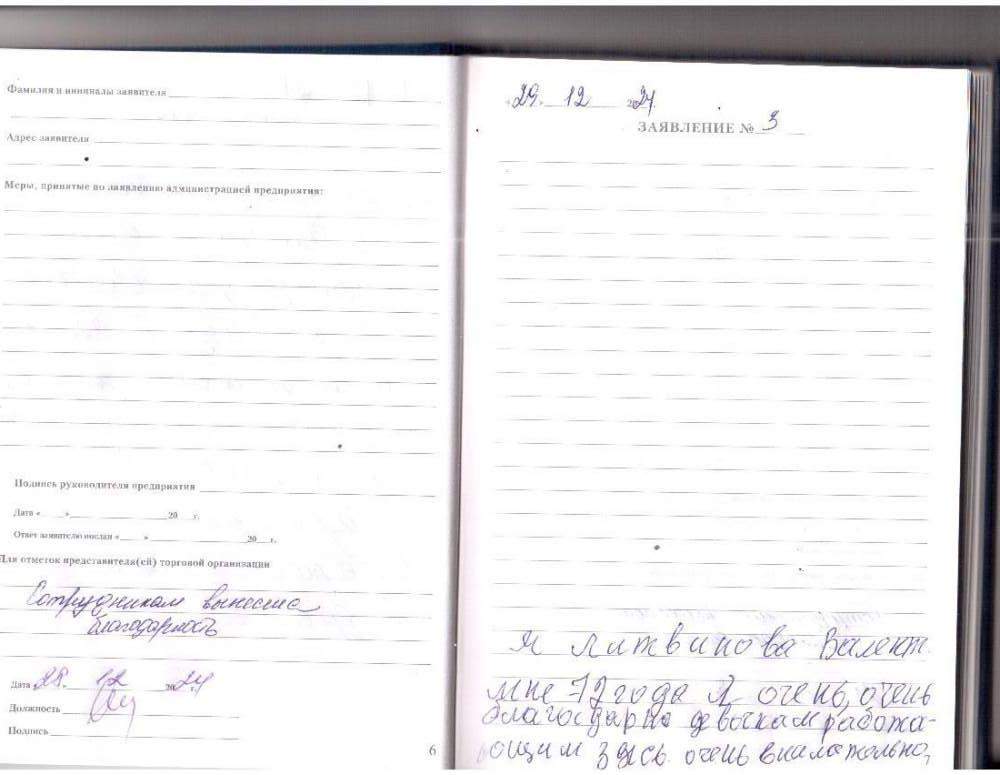 Фамилия и инициалы заявителя
Адрес заявителя
Меры, принятые по заявлению администрацией предприятия:
Подпись руководителя предприятия
Дата « » 20 г.
Ответ заявителю послан « » 20 г.
Для отметок представителя(ей) торговой организации
Сотрудникам вынесена
благодарность
Дата 28. 12 2024
Должность
Подпись
6
29. 12 2024.
ЗАЯВЛЕНИЕ № 3
Я Литвинова Валент.
мне 72 года я очень, очень
благодарна девочкам работа-
ющим здесь очень внимательно,